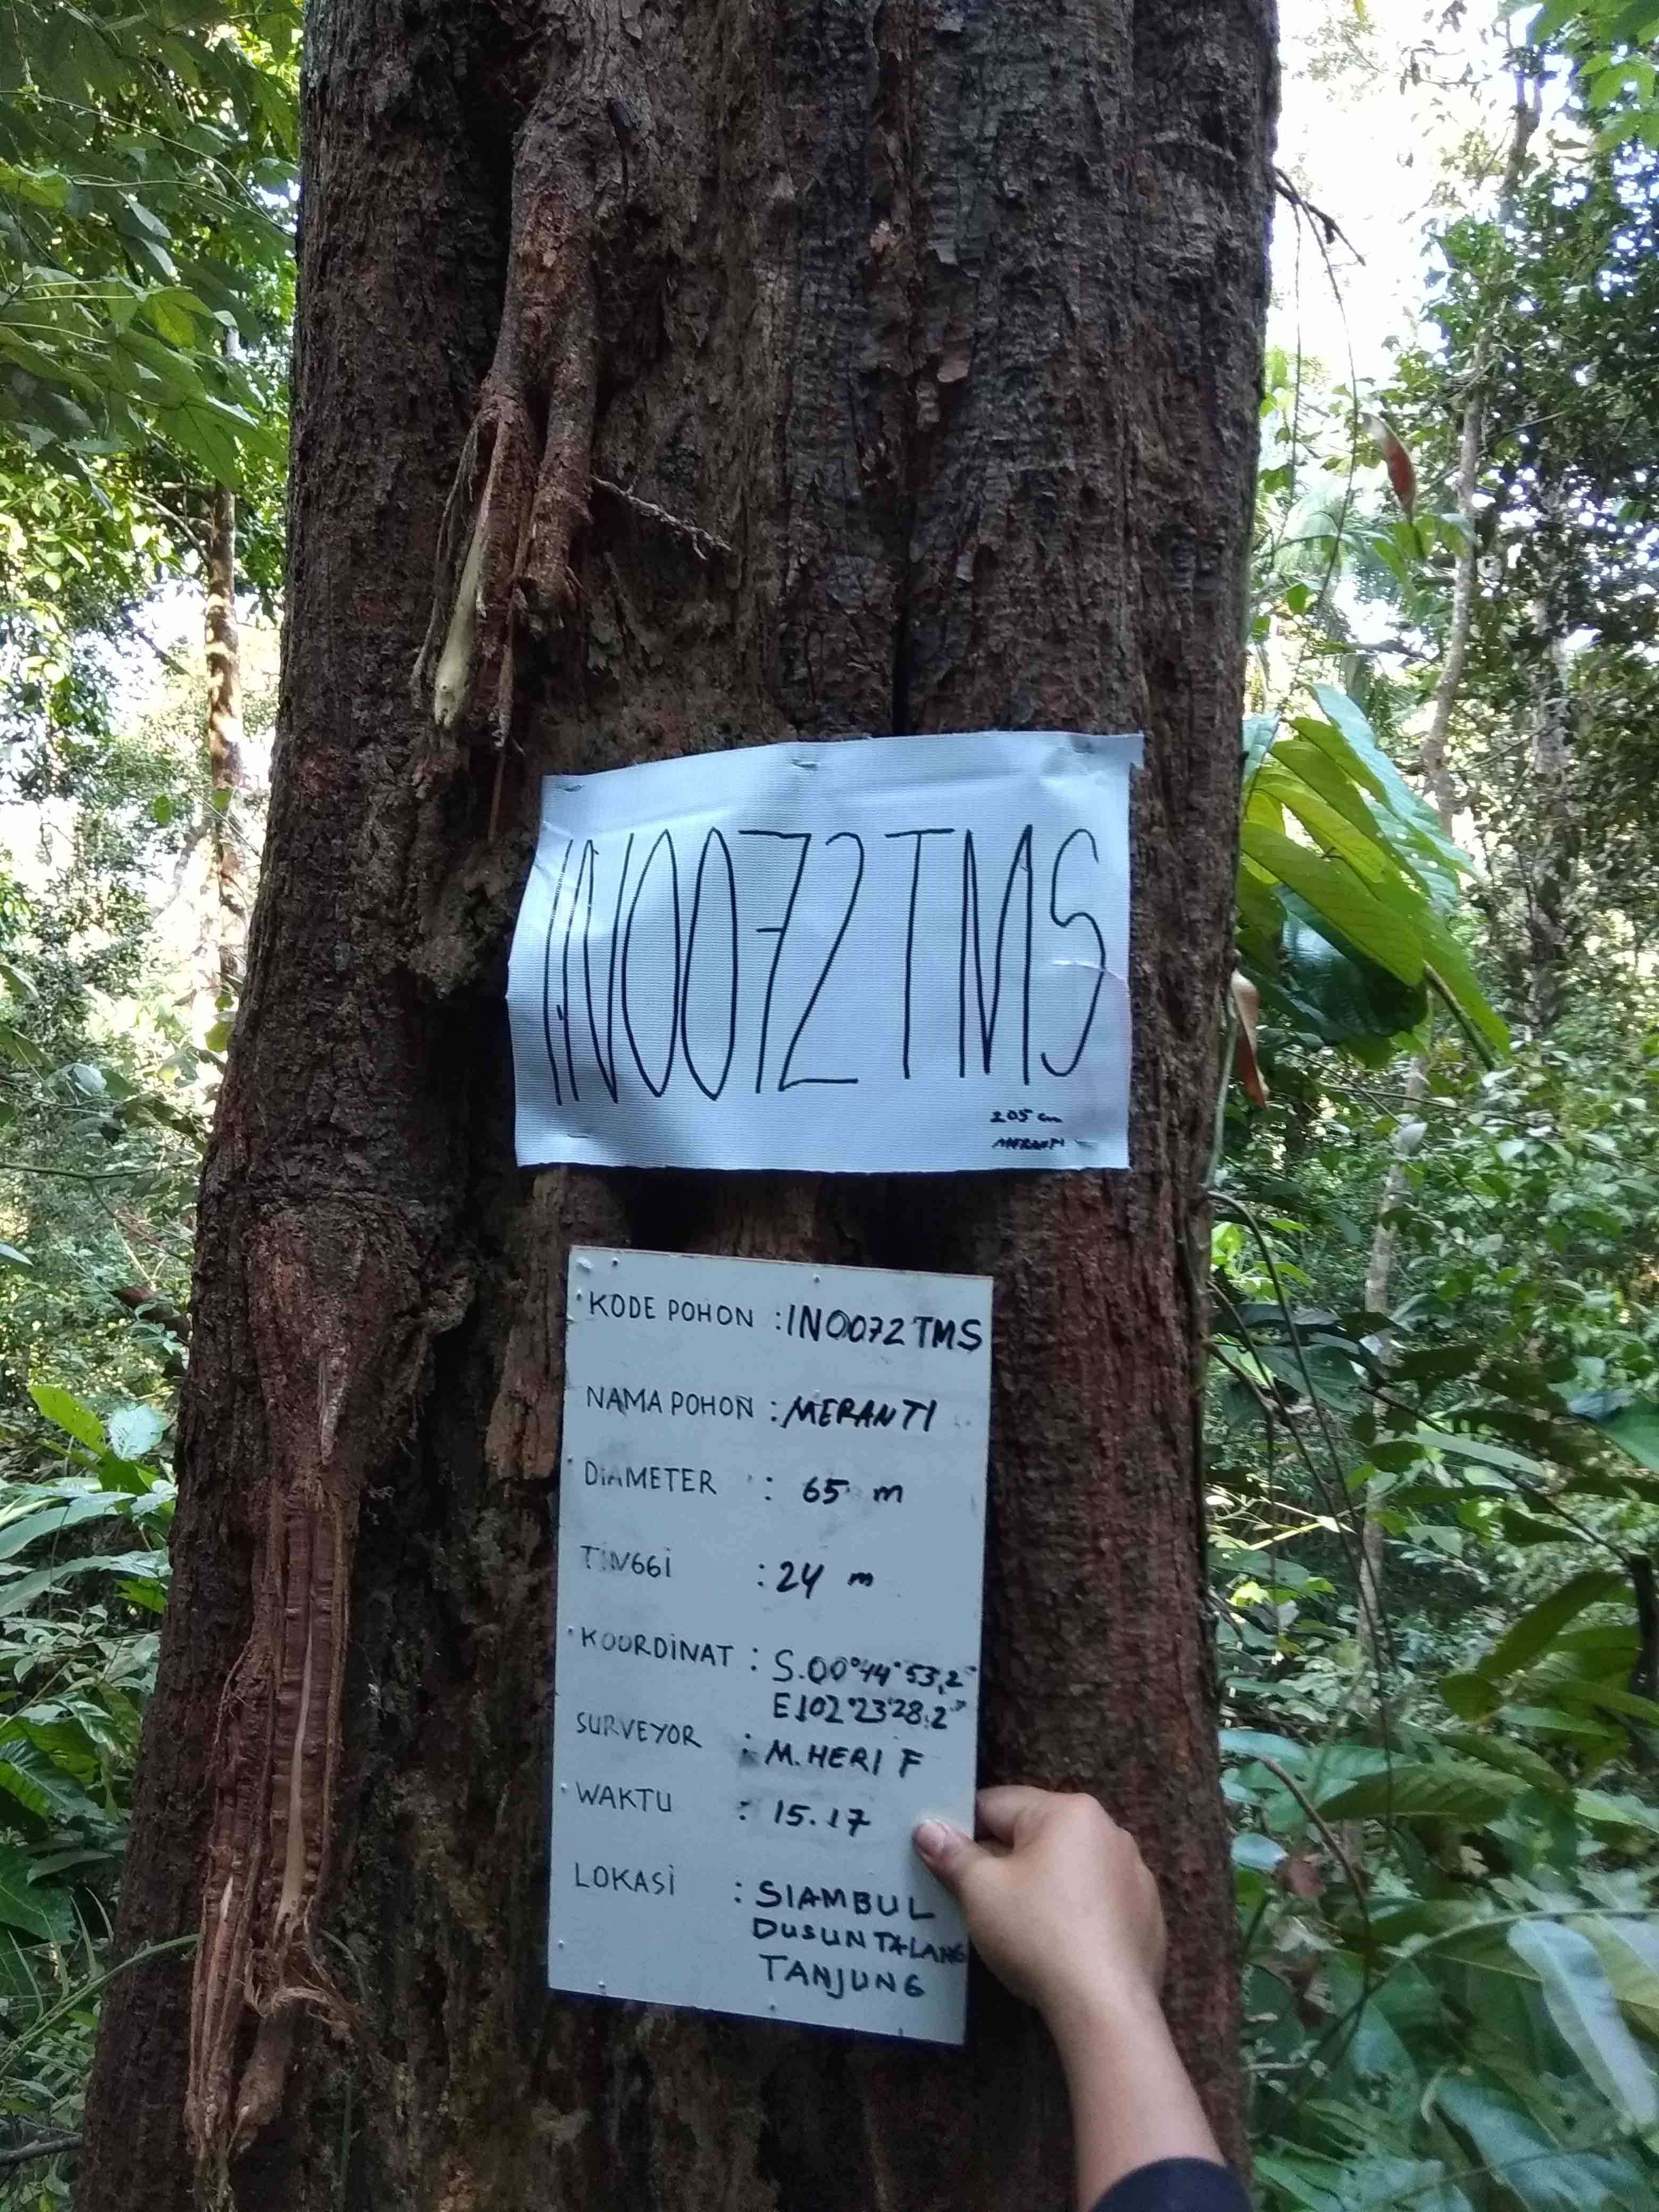 IN0072TMS
205 cm
MERANTI
KODE POHON : IN0072TMS
NAMA POHON : MERANTI
DIAMETER : 65 m
TINGGI : 24 m
KOORDINAT : S.00°44'53,2"
E102°23'28,2"
SURVEYOR : M.HERI F
WAKTU : 15.17
LOKASI : SIAMBUL
DUSUN TALANG
TANJUNG